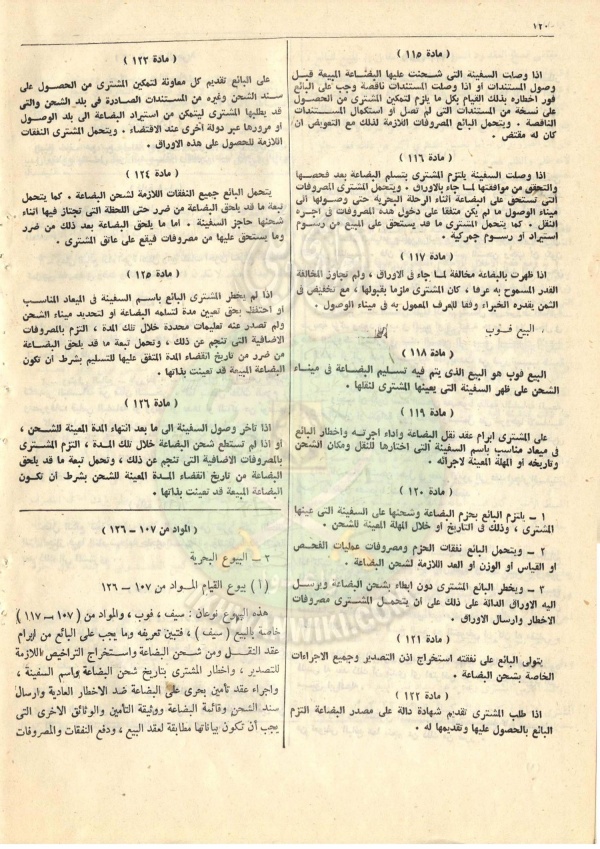 ١٢٠
( مادة ١١٥ )
اذا وصلت السفينة التى شحنت عليها البضاعة المبيعة قبل
وصول المستندات أو اذا وصلت المستندات ناقصة وجب على البائع
فور اخطاره بذلك القيام بكل ما يلزم لتمكين المشترى من الحصول
على نسخة من المستندات التى لم تصل أو استكمال المستندات
الناقصة . ويتحمل البائع المصروفات اللازمة لذلك مع التعويض ان
كان له مقتض .
( مادة ١١٦ )
اذا وصلت السفينة يلتزم المشترى بتسلم البضاعة بعد فحصها
والتحقق من موافقتها لما جاء بالأوراق . ويتحمل المشترى المصروفات
التى تستحق على البضاعة أثناء الرحلة البحرية حتى وصولها الى
ميناء الوصول ما لم يكن متفقا على دخول هذه المصروفات فى أجرة
النقل . كما يتحمل المشترى ما قد يستحق على المبيع من رسوم
استيراد أو رسوم جمركية .
( مادة ١١٧ )
اذا ظهرت بالبضاعة مخالفة لما جاء فى الأوراق ، ولم تجاوز المخالفة
القدر المسموح به عرفا ، كان المشترى ملزما بقبولها ، مع تخفيض فى
الثمن يقدره الخبراء وفقا للعرف المعمول به فى ميناء الوصول .
البيع فوب
( مادة ١١٨ )
البيع فوب هو البيع الذى يتم فيه تسليم البضاعة فى ميناء
الشحن على ظهر السفينة التى يعينها المشترى لنقلها .
( مادة ١١٩ )
على المشترى ابرام عقد نقل البضاعة وأداء أجرته واخطار البائع
فى ميعاد مناسب باسم السفينة التى اختارها للنقل ومكان الشحن
وتاريخه أو المهلة المعينة لاجرائه .
( مادة ١٢٠ )
١ – يلتزم البائع بحزم البضاعة وشحنها على السفينة التى عينها
المشترى ، وذلك فى التاريخ أو خلال المهلة المعينة للشحن .
٢ – ويتحمل البائع نفقات الحزم ومصروفات عمليات الفحص
أو القياس أو الوزن أو العد اللازمة لشحن البضاعة .
٣ – ويخطر البائع المشترى دون ابطاء بشحن البضاعة ويرسل
اليه الأوراق الدالة على ذلك على أن يتحمل المشترى مصروفات
الاخطار وارسال الأوراق .
( مادة ١٢١ )
يتولى البائع على نفقته استخراج اذن التصدير وجميع الاجراءات
الخاصة بشحن البضاعة .
( مادة ١٢٢ )
اذا طلب المشترى تقديم شهادة دالة على مصدر البضاعة التزم
البائع بالحصول عليها وتقديمها له .
( مادة ١٢٣ )
على البائع تقديم كل معاونة لتمكين المشترى من الحصول على
سند الشحن وغيره من المستندات الصادرة فى بلد الشحن والتى
قد يطلبها المشترى ليتمكن من استيراد البضاعة الى بلد الوصول
أو مرورها عبر دولة أخرى عند الاقتضاء . ويتحمل المشترى النفقات
اللازمة للحصول على هذه الأوراق .
( مادة ١٢٤ )
يتحمل البائع جميع النفقات اللازمة لشحن البضاعة . كما يتحمل
تبعة ما قد يلحق البضاعة من ضرر حتى اللحظة التى تجتاز فيها أثناء
شحنها حاجز السفينة . أما ما يلحق البضاعة بعد ذلك من ضرر
وما يستحق عليها من مصروفات فيقع على عاتق المشترى .
( مادة ١٢٥ )
اذا لم يخطر المشترى البائع باسم السفينة فى الميعاد المناسب
أو احتفظ بحق تعيين مدة لتسلمه البضاعة أو لتحديد ميناء الشحن
ولم تصدر عنه تعليمات محددة خلال تلك المدة ، التزم بالمصروفات
الاضافية التى تنجم عن ذلك ، وتحمل تبعة ما قد يلحق البضاعة
من ضرر من تاريخ انقضاء المدة المتفق عليها للتسليم بشرط أن تكون
البضاعة المبيعة قد تعينت بذاتها .
( مادة ١٢٦ )
اذا تأخر وصول السفينة الى ما بعد انتهاء المدة المعينة للشحن ،
أو اذا لم تستطع شحن البضاعة خلال تلك المدة ، التزم المشترى
بالمصروفات الاضافية التى تنجم عن ذلك ، وتحمل تبعة ما قد يلحق
البضاعة من تاريخ انقضاء المدة المعينة للشحن بشرط أن تكون
البضاعة المبيعة قد تعينت بذاتها .
( المواد من ١٠٧ – ١٢٦ )
٣ – البيوع البحرية
( أ ) بيوع القيام المواد من ١٠٧ – ١٢٦
هذه البيوع نوعان : سيف ، فوب ، والمواد من ( ١٠٧ – ١١٧ )
خاصة بالبيع ( سيف ) ، فتبين تعريفه وما يجب على البائع من ابرام
عقد النقل ومن شحن البضاعة واستخراج التراخيص اللازمة
للتصدير ، واخطار المشترى بتاريخ شحن البضاعة واسم السفينة ،
واجراء عقد تأمين بحرى على البضاعة ضد الأخطار العادية وارسال
سند الشحن وقائمة البضاعة ووثيقة التأمين والوثائق الأخرى التى
يجب أن تكون بياناتها مطابقة لعقد البيع ، ودفع النفقات والمصروفات